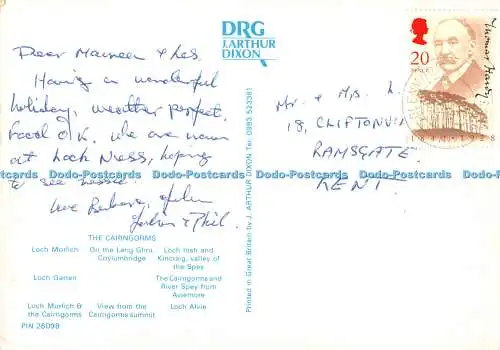 Dear Maureen & Les.
Having a wonderful
holiday, weather perfect.
Food O.K. We are now
at Loch Ness, hoping
to see Nessie.
Love Barbara, John
& Phil.
DRG
J. ARTHUR
DIXON
20
PENCE
Thomas Hardy
1840 1928
Mr. & Mrs.
18, CLIFTONVI
RAMSGATE.
KENT.
Dodo-Postcards Dodo-Postcards Dodo-Postcards Dodo-Postcards Dodo-Postcards Dodo-Postcards Dodo-Postcards
Printed in Great Britain by J. ARTHUR DIXON Tel 0983 523381
THE CAIRNGORMS
Loch Morlich
On the Lairig Ghru, Coylumbridge
Loch Insh and Kincraig, valley of the Spey
Loch Garten
The Cairngorms and River Spey from Aviemore
Loch Morlich & the Cairngorms
View from the Cairngorms summit
Loch Alvie
PIN 26098